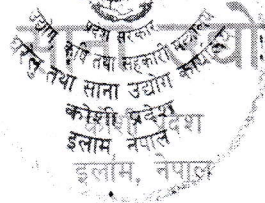 प्रदेश सरकार
उद्योग, कृषि तथा सहकारी मन्त्रालय
घरेलु तथा साना उद्योग कार्यालय
साना उद्यो
कोशी प्रदेश
कोशी प्रदेश
इलाम, नेपाल
इलाम, नेपाल